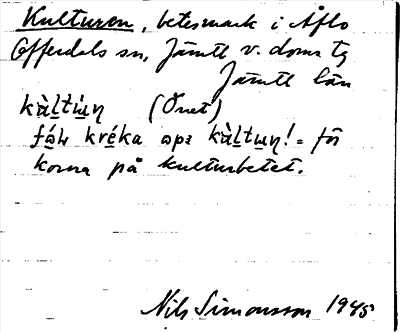 Kulturen, betesmark i Åflo
Offerdals sn, Jämtl v. doms tg
Jämtl län
kὰltɯn (Önet)
kréka kὰltɯn! = för
korna på kulturbetet.
Nils Simonsson 1945